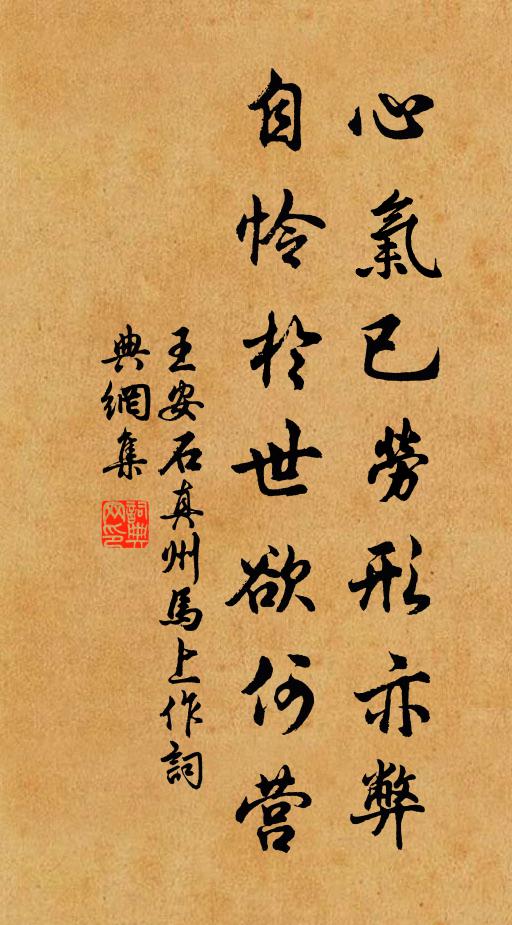 心氣已勞形亦弊
自怜於世欲何营
王安石真州馬上作詞
典網集
詞典網印